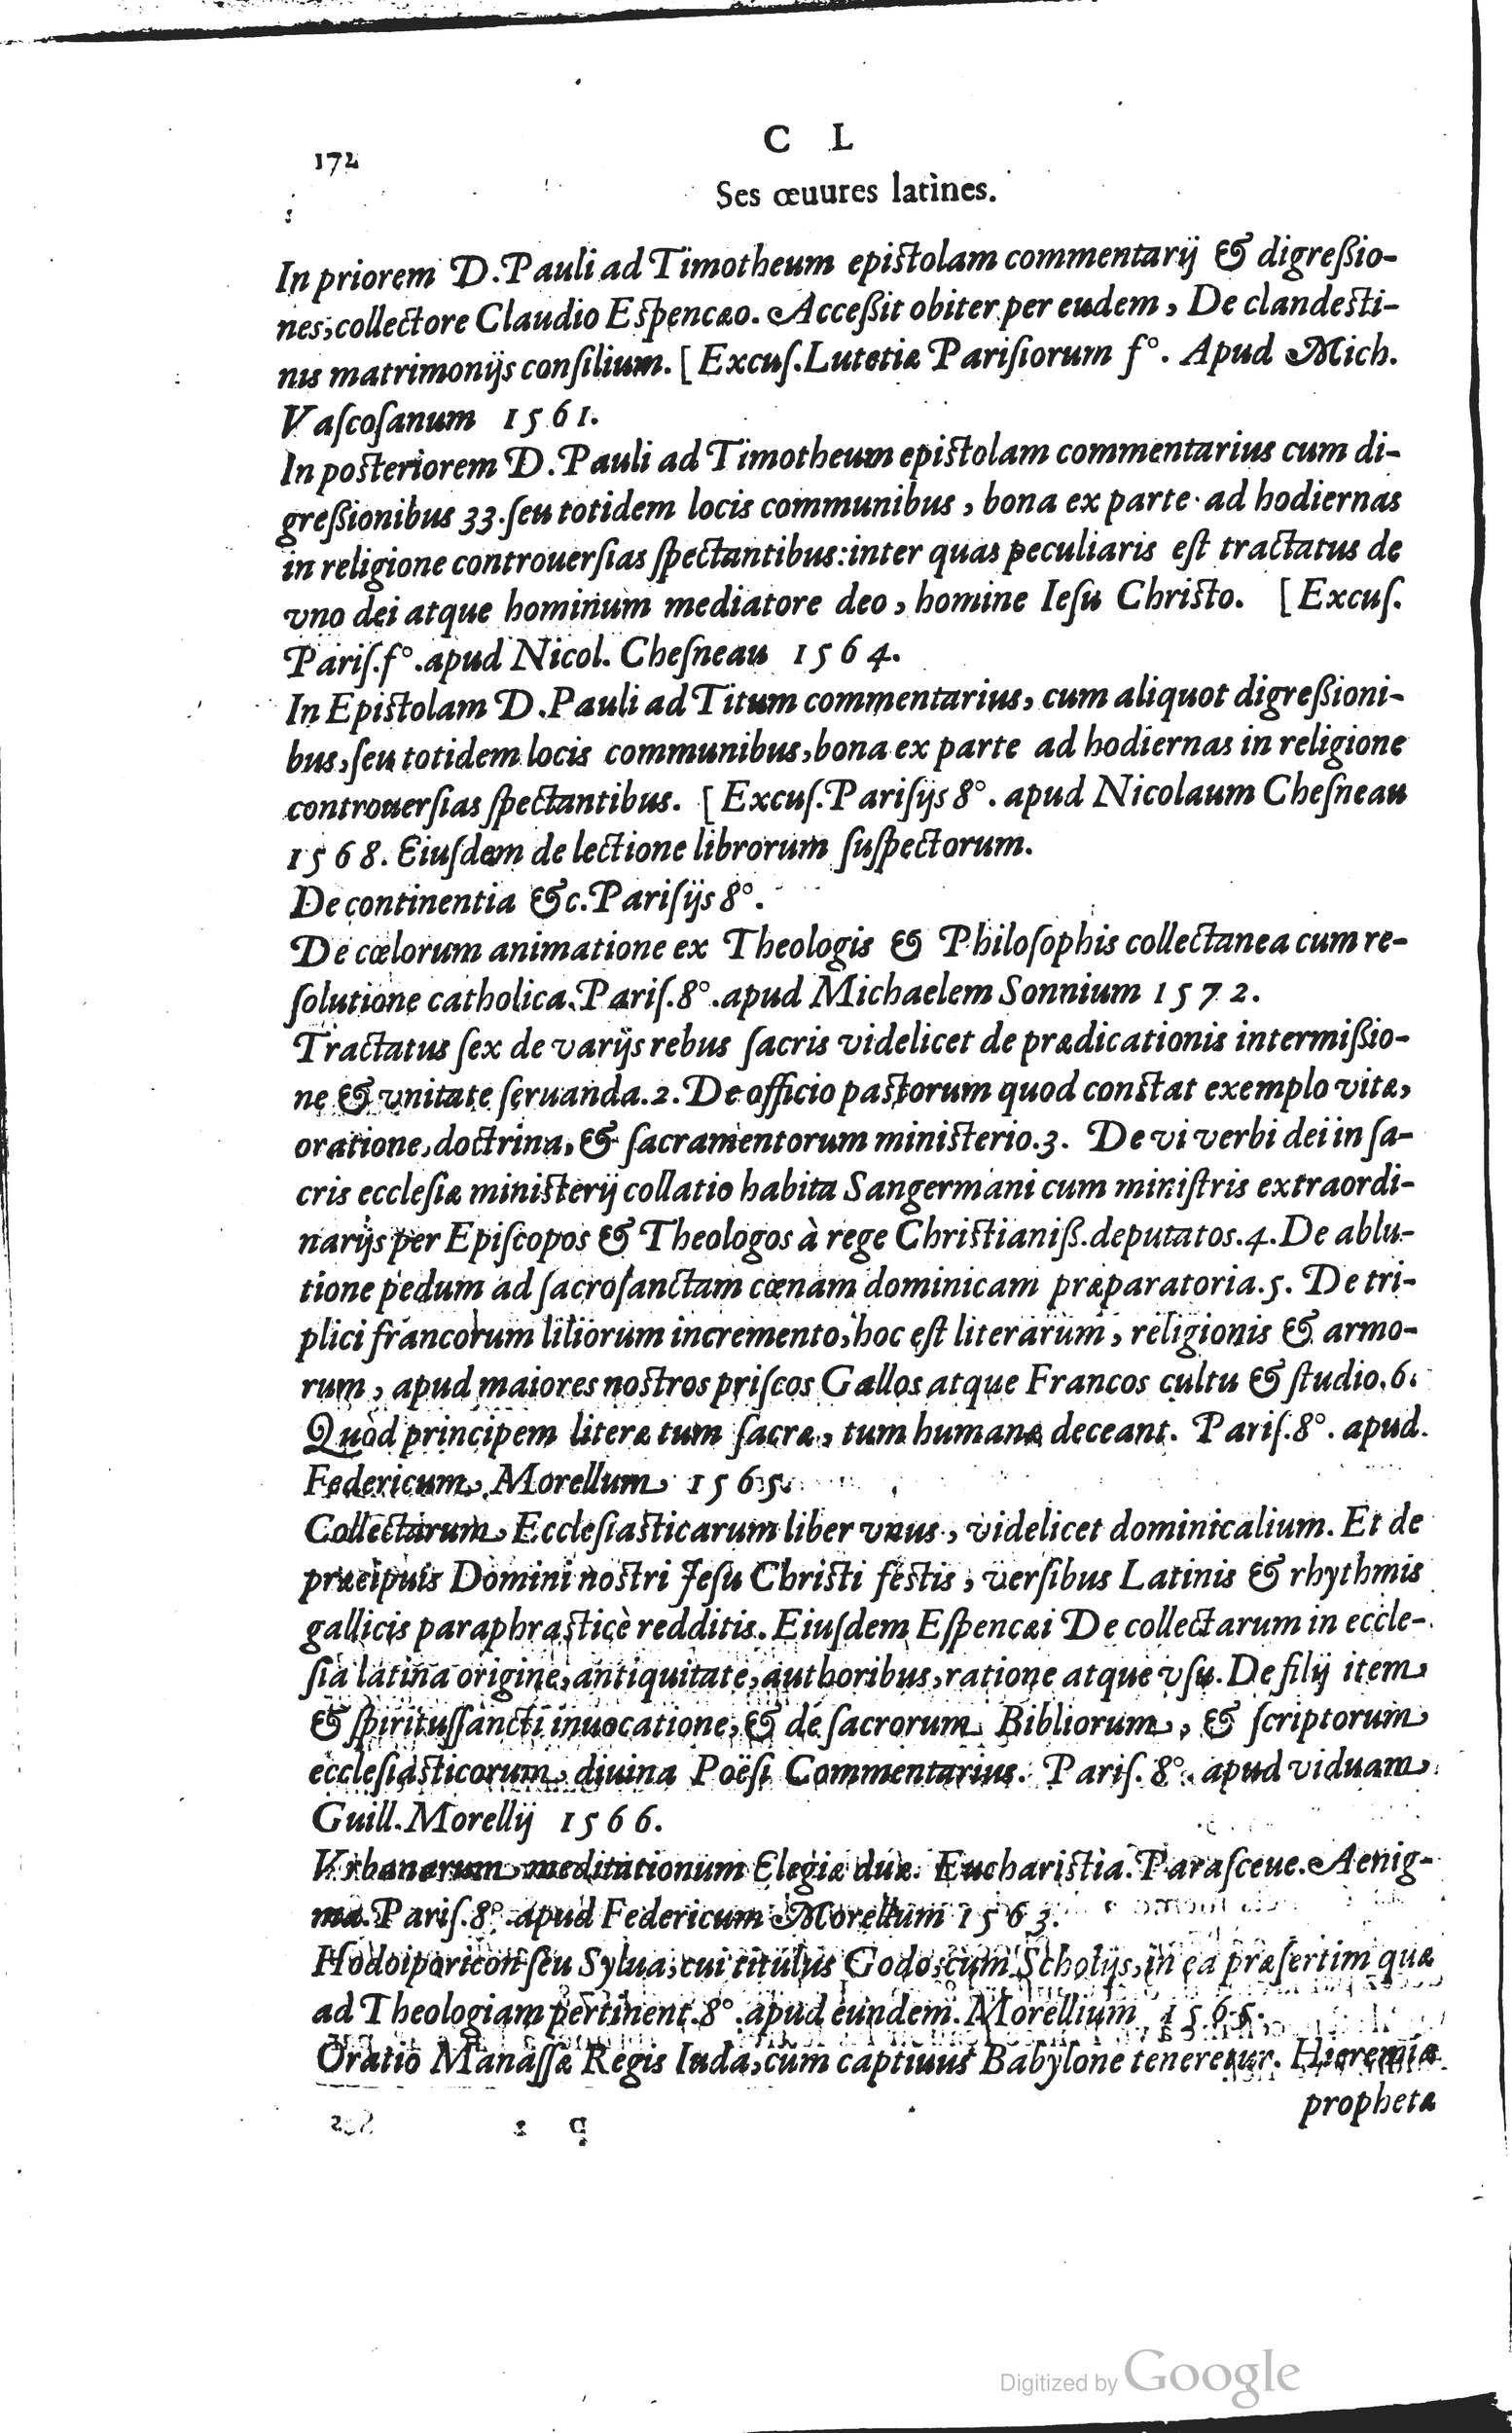 172
C L
Ses œuures latines.
In priorem D. Pauli ad Timotheum epistolam commentarij & digreßio-
nes, collectore Claudio Espencæo. Acceßit obiter per eudem, De clandesti-
nis matrimonijs consilium. [Excuſ. Lutetiæ Pariſiorum f°. Apud Mich.
Vaſcoſanum 1561.
In posteriorem D. Pauli ad Timotheum epistolam commentarius cum di-
greßionibus 33. ſeu totidem locis communibus, bona ex parte ad hodiernas
in religione controuerſias ſpectantibus: inter quas peculiaris eſt tractatus de
vno dei atque hominum mediatore deo, homine Ieſu Christo. [Excuſ.
Pariſ. f°. apud Nicol. Cheſneau 1564.
In Epistolam D. Pauli ad Titum commentarius, cum aliquot digreßioni-
bus, ſeu totidem locis communibus, bona ex parte ad hodiernas in religione
controuerſias ſpectantibus. [Excuſ. Pariſijs 8°. apud Nicolaum Cheſneau
1568. Eiuſdem de lectione librorum ſuſpectorum.
De continentia &c. Pariſijs 8°.
De cœlorum animatione ex Theologis & Philoſophis collectanea cum re-
ſolutione catholica. Pariſ. 8°. apud Michaelem Sonnium 1572.
Tractatus ſex de varijs rebus ſacris videlicet de prædicationis intermißio-
ne & vnitate ſeruanda. 2. De officio pastorum quod constat exemplo vitæ,
oratione, doctrina, & ſacramentorum ministerio. 3. De vi verbi dei in ſa-
cris eccleſiæ ministerij collatio habita Sangermani cum miniſtris extraordi-
narijs per Epiſcopos & Theologos à rege Christianiß. deputatos. 4. De ablu-
tione pedum ad ſacroſanctam cœnam dominicam præparatoria. 5. De tri-
plici francorum liliorum incremento, hoc eſt literarum, religionis & armo-
rum, apud maiores nostros priſcos Gallos atque Francos cultu & ſtudio. 6.
Quòd principem literæ tum ſacræ, tum humanæ deceant. Pariſ. 8°. apud
Federicum Morellum 1565.
Collectarum Eccleſiasticarum liber vnus, videlicet dominicalium. Et de
præcipuis Domini nostri Jeſu Christi festis, verſibus Latinis & rhythmis
gallicis paraphrasticè redditis. Eiuſdem Eſpencæi De collectarum in eccle-
ſia latina origine, antiquitate, authoribus, ratione atque vſu. De filij item
& ſpirituſſancti inuocatione, & de ſacrorum Bibliorum, & ſcriptorum
eccleſiasticorum diuina Poëſi Commentarius. Pariſ. 8°. apud viduam
Guill. Morellij 1566.
Vrbanarum meditationum Elegiæ duæ. Eucharistia. Paraſceue. Aenig-
ma. Pariſ. 8°. apud Federicum Morellum 1563.
Hodoiporicon ſeu Sylua, cui titulus Godo, cum Scholijs, in ea præſertim quæ
ad Theologiam pertinent. 8°. apud eundem. Morellium 1565.
Oratio Manaſſæ Regis Iuda, cum captiuus Babylone teneretur. Hieremiæ
prophetæ
Digitized by Google